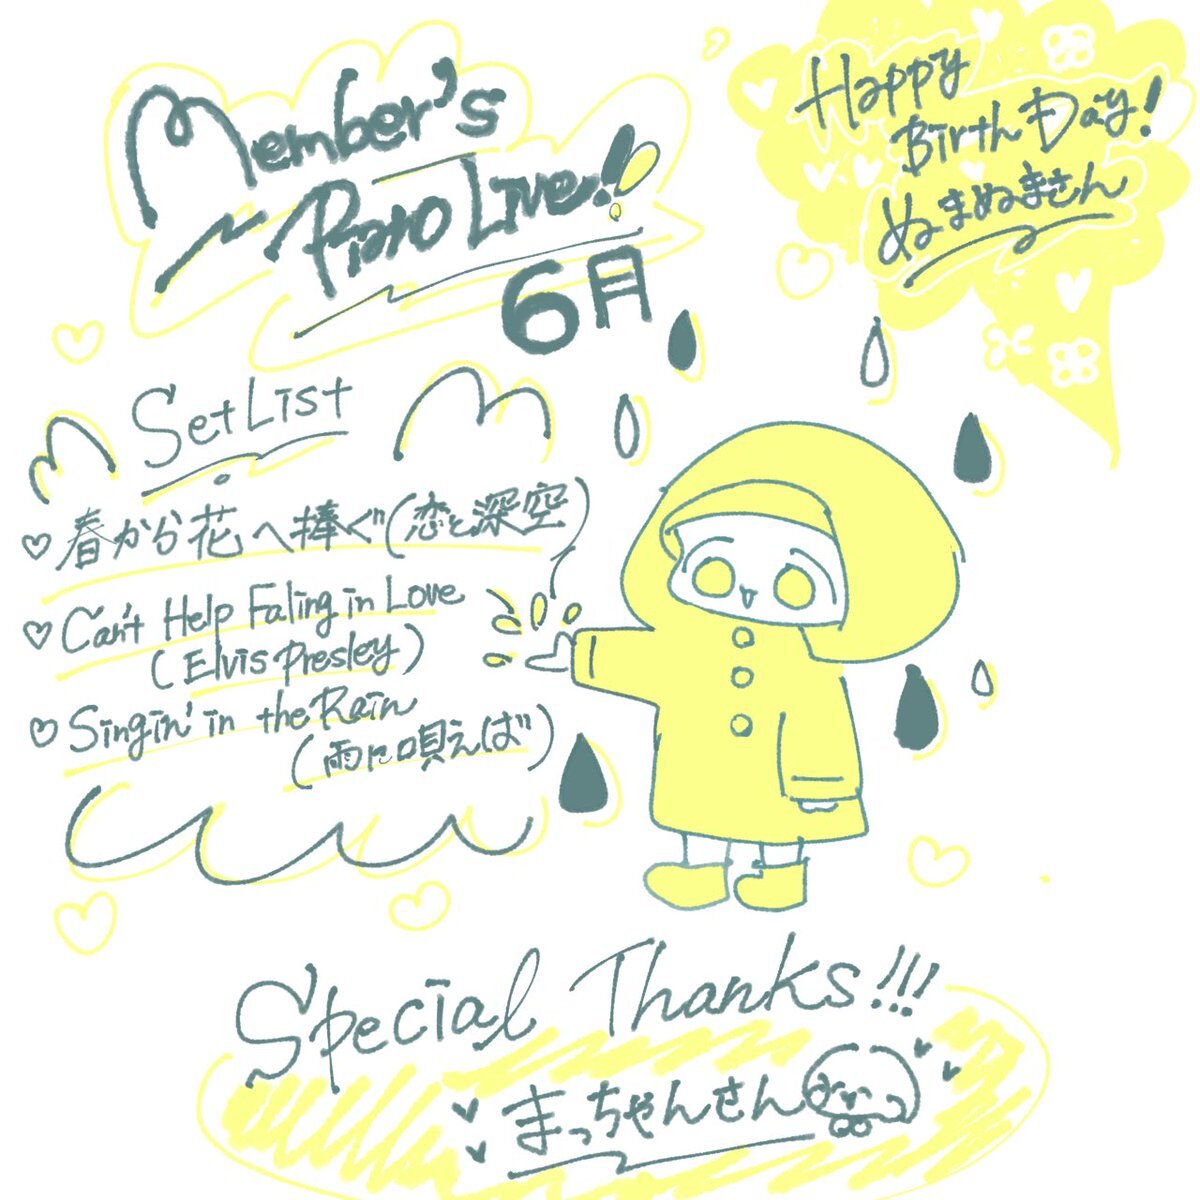 Member's
Piano Live!!
6月
Happy
Birth Day!
ぬまぬまさん
Set List
♡春から花へ捧ぐ(恋と深空)
♡Can't Help Faling in Love
(Elvis Presley)
♡Singin' in the Rain
(雨に唄えば)
Special Thanks!!!
まっちゃんさん